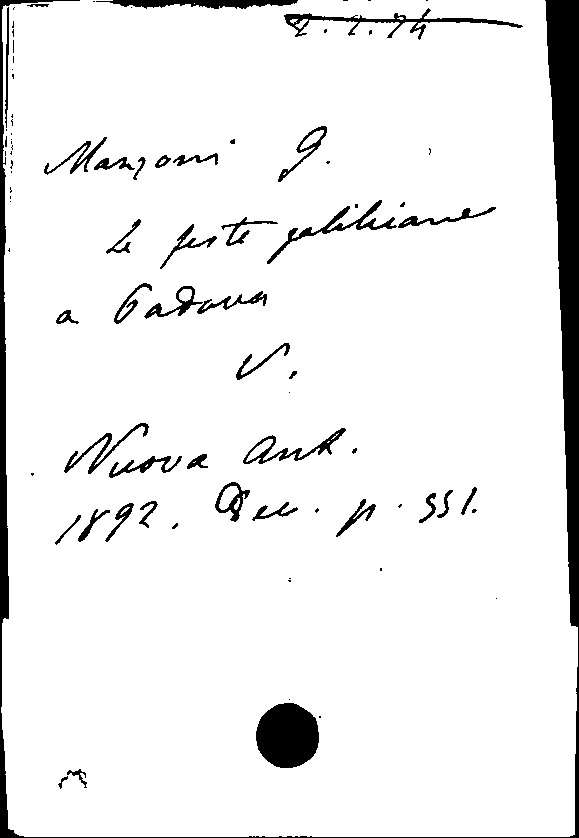 2.2.74
Manzoni G.
Le feste galileiane
a Padova
V.
Nuova Ant.
1892. Dec. p. 551.